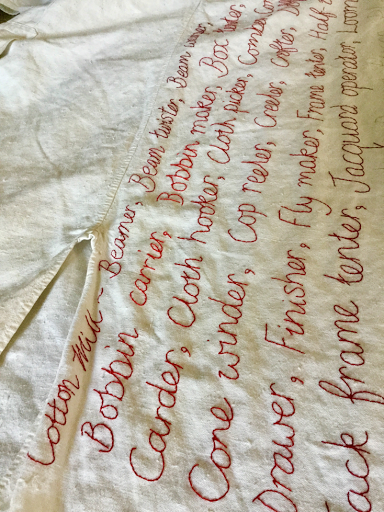 Cotton mill - Beamer, Beam twister, Beam
Bobbin carrier, Bobbin maker, Box
Carder, Cloth hooker, Cloth picker,
Cone winder, Cop reeler, Creeler,
Drawer, Finisher, Fly maker, Frame tenter, Half-
Jack frame tenter, Jacquard operator, Loom